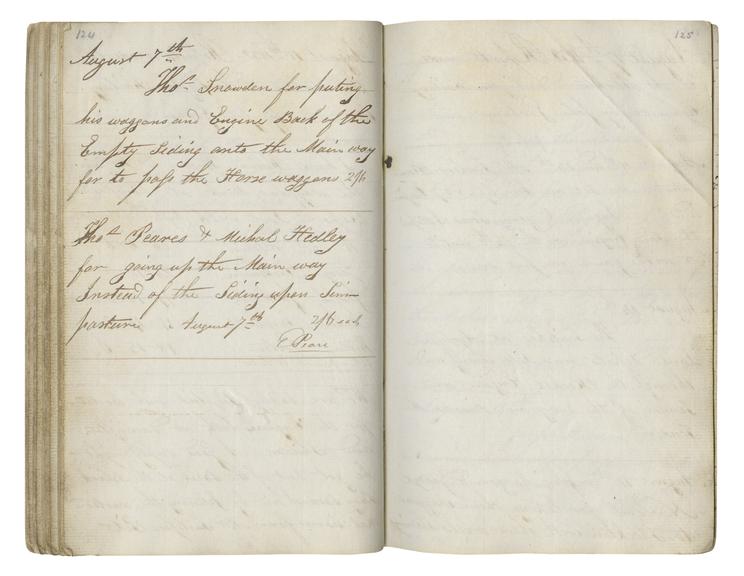 124
August 7th
Thos Snowden for puting
his waggons and Engine Back of the
Empty Siding onto the Main way
for to pass the Horse waggons 2/6
Thos Peares & Michal Hedley
for going up the Main way
Instead of the Siding upon Sim
pasture August 7th 2/6 each
Peare
125